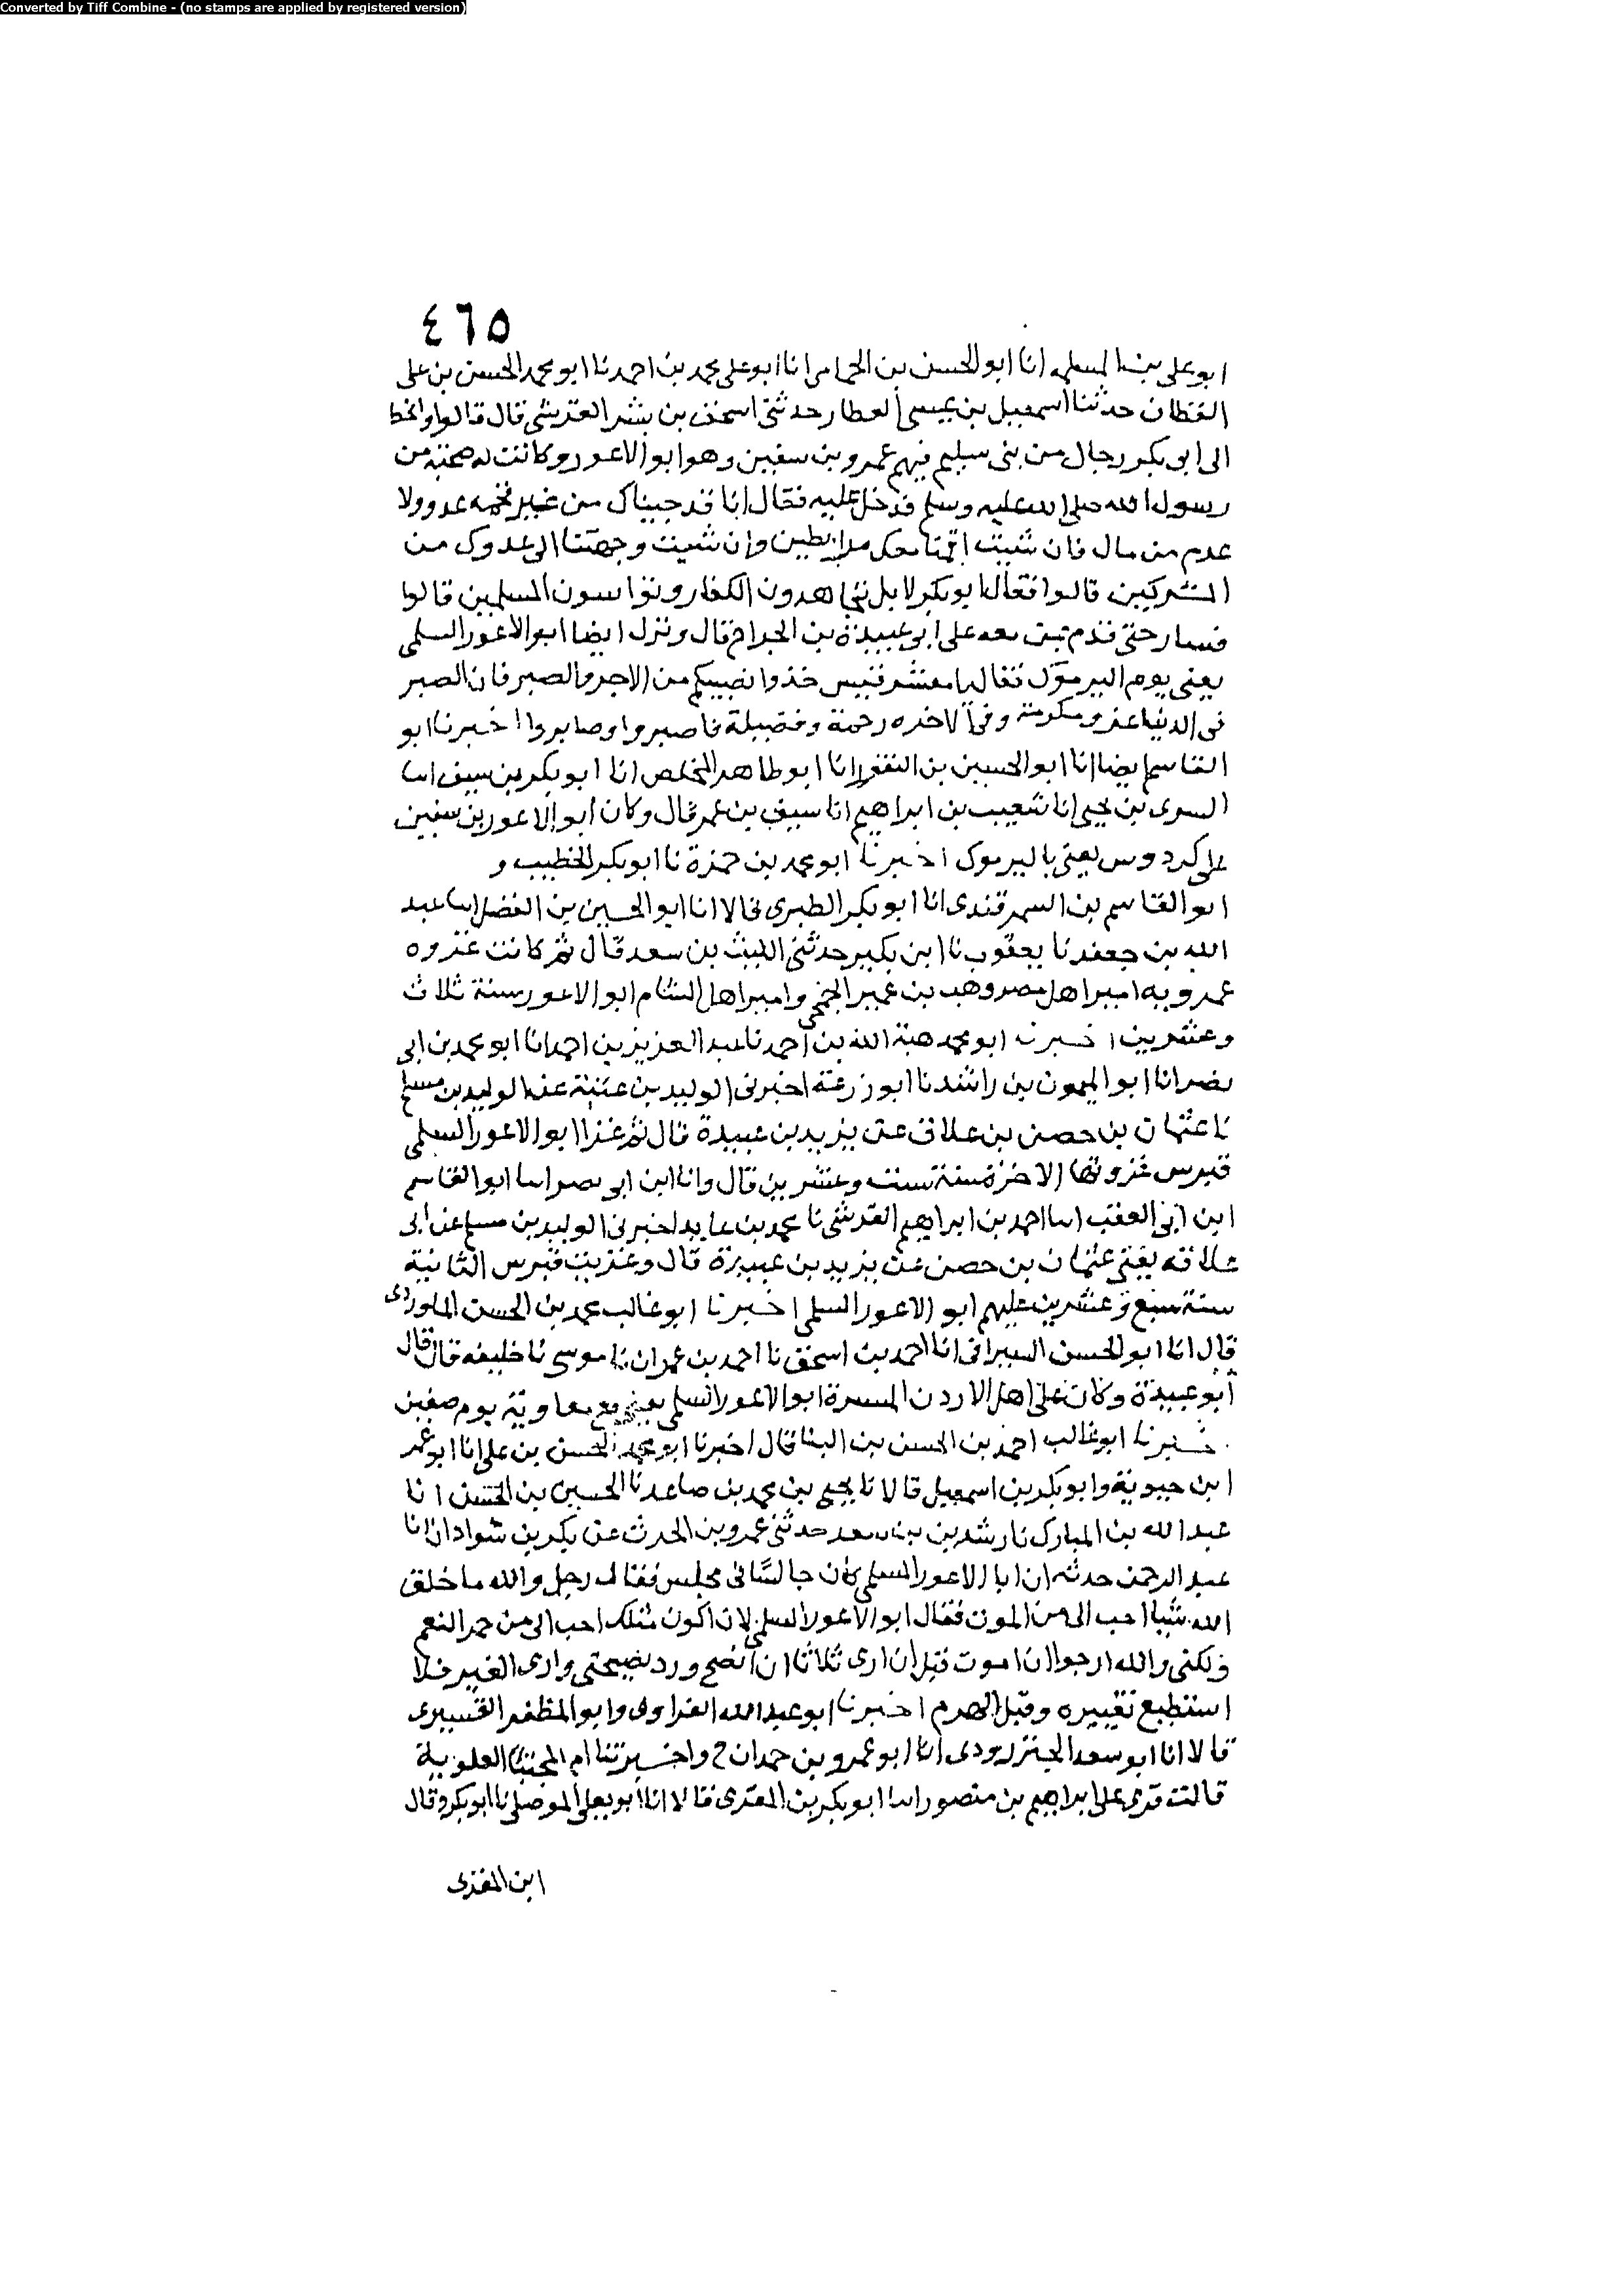 Converted by Tiff Combine - (no stamps are applied by registered version)
٤٦٥
ابو على بن المسلمه انا ابو الحسن بن الحمامى انا ابو على محمد بن احمد نا ابو محمد الحسن بن على
القطان حدثنا اسمعيل بن عيسى العطار حدثنى اسحق بن بشر القرشى قال قالوا
الى ابى بكر رجال من بنى سليم فيهم عمرو بن سفين وهو ابو الاعور وكانت له صحبة من
رسول الله صلى الله عليه وسلم فدخل عليه فقال انا قد جيناك من غير عدو ولا
عدم من مال فان شيت اقمنا معك مرابطين وان شيت وجهتنا الى عدوك من
المشركين قالوا فقال ابو بكر لا بل تجاهدون الكفار وتواسون المسلمين قالوا
فسار حتى قدم معه على ابى عبيدة بن الجراح قال ونزل ايضا ابو الاعور السلمى
يعنى يوم اليرموك فقال يا معشر قيس خذوا نصيبكم من الاجر والصبر فان الصبر
فى الدنيا عز ومكرمة وفى الاخره رحمة وفضيلة فاصبروا وصابروا اخبرنا ابو
القاسم ايضا انا ابو الحسين بن النقور انا ابو طاهر المخلص انا ابو بكر بن سيف انا
السرى بن يحيى انا شعيب بن ابراهيم انا سيف بن عمر قال وكان ابو الاعور بن سفين
على كردوس يعنى باليرموك اخبرنا ابو محمد بن حمزة نا ابو بكر الخطيب و
ابو القاسم بن السمرقندى انا ابو بكر الطبرى قالا انا ابو الحسين بن الفضل انا عبد
الله بن جعفر نا يعقوب نا ابن بكير حدثنى الليث بن سعد قال ثم كانت غزوه
عمرويه امير اهل مصر وهب بن عمير الجمحى وامير اهل الشام ابو الاعور سنة ثلاث
وعشرين اخبرنا ابو محمد هبة الله بن احمد نا عبد العزيز بن احمد انا ابو محمد بن ابى
نصر انا ابو الميمون بن راشد نا ابو زرعة اخبرنى الوليد بن عتبة عن الوليد بن مسلم
نا عثمان بن حصن بن علاق عن يزيد بن عبيدة قال ثم غزا ابو الاعور السلمى
قبرس غزوتها الاخرة سنة ست وعشرين قال وانا ابن ابى نصر انا ابو القاسم
ابن ابى العقب انا احمد بن ابراهيم القرشى نا محمد بن عايد اخبرنى الوليد بن مسلم عن ابى
علاقه يعنى عثمان بن حصن عن يزيد بن عبيدة قال وغزيت قبرس الثانية
سنة سبع وعشرين عليهم ابو الاعور السلمى اخبرنا ابو غالب محمد بن الحسن الماوردى
قال انا ابو الحسن السيرافى انا احمد بن اسحق نا احمد بن عمران نا موسى نا خليفه قال قال
ابو عبيدة وكان على اهل الاردن الميسرة ابو الاعور السلمى يعنى مع معاوية يوم صفين
اخبرنا ابو غالب احمد بن الحسن بن البنا قال اخبرنا ابو محمد الحسن بن على انا ابو عمر
ابن حيوية وابو بكر بن اسمعيل قالا نا يحيى بن محمد بن صاعد نا الحسين بن الحسن انا
عبد الله بن المبارك نا رشدين بن سعد حدثنى عمرو بن الحرث عن بكر بن سوادة ان ابا
عبد الرحمن حدثه ان ابا الاعور السلمى كان جالسا فى مجلس فقال رجل والله ما خلق
الله شيا احب الى من الموت فقال ابو الاعور السلمى لان اكون مثلك احب الى من حمر النعم
ولكنى والله ارجوا ان اموت قبل ان ارى ثلاثا ان انصح فترد نصيحتى وارى الغير فلا
استطيع تغييره وقبل الهرم اخبرنا ابو عبد الله الفراوى وابو المظفر القشيرى
قالا انا ابو سعد الجنزرودى انا ابو عمرو بن حمدان ح واخبرتنا ام المجتبا العلوية
قالت قرى على ابراهيم بن منصور انا ابو بكر بن المقرى قالا انا ابو يعلى الموصلى نا ابو بكر وقال
ابن المقرى